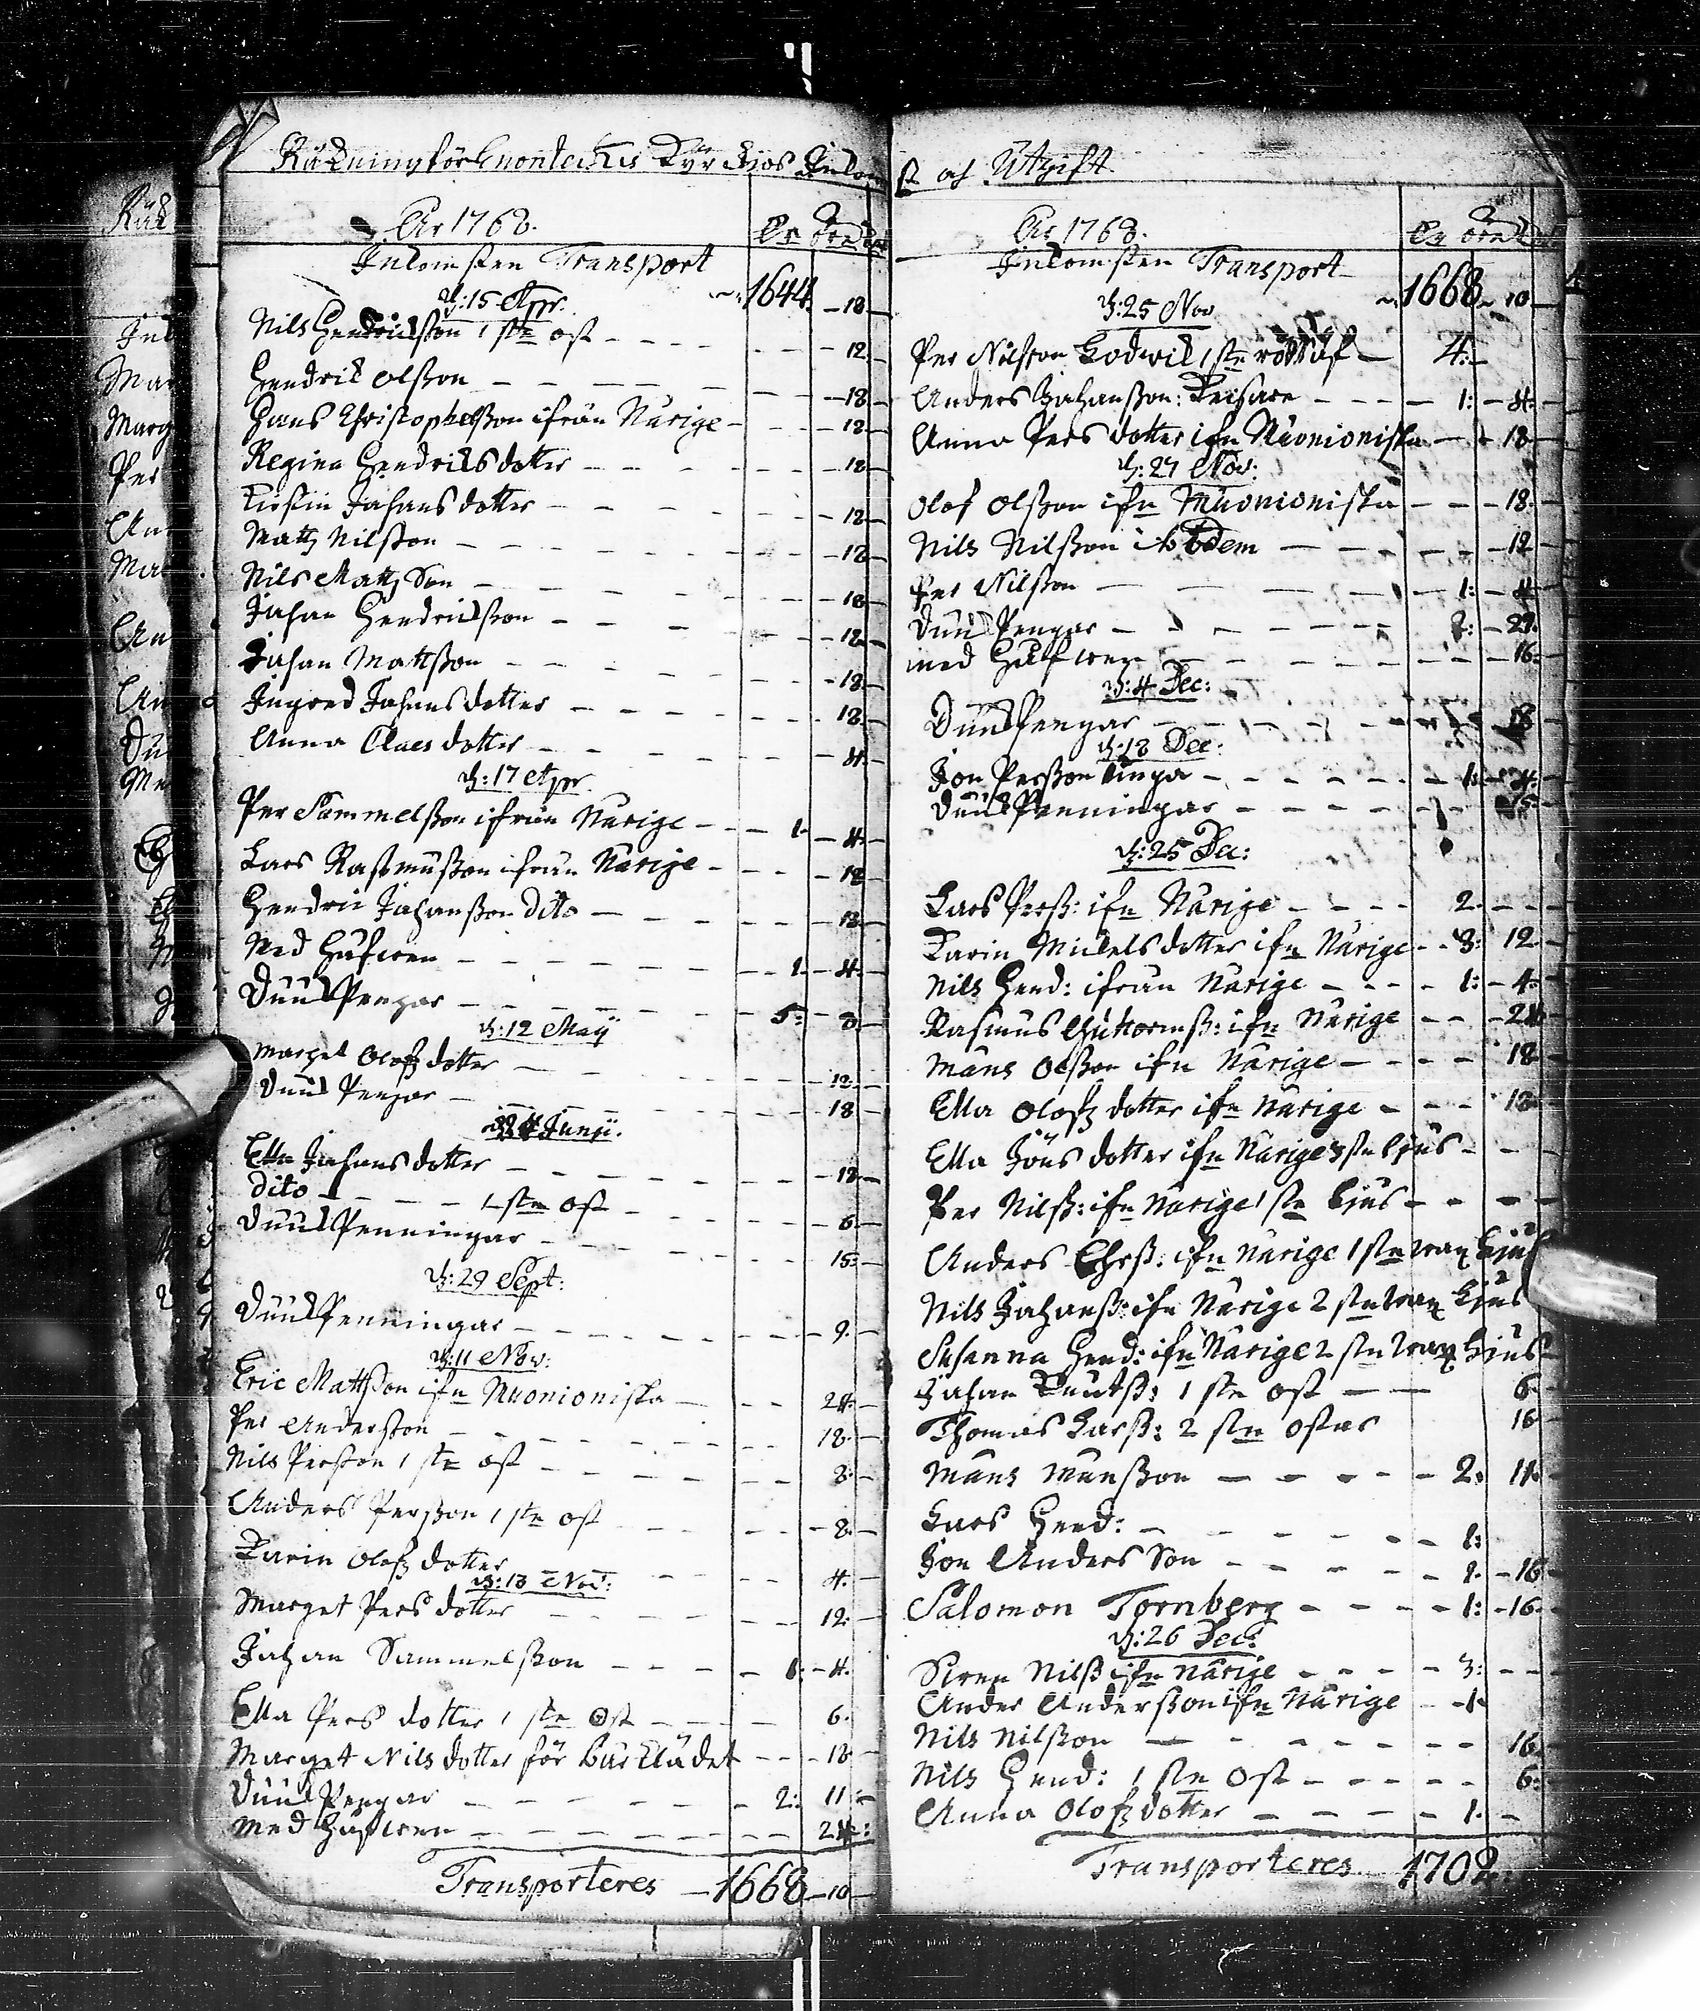 Räkning för Enontekis Kyrckios Inkom
År 1768.
Inkomsten Transport 1644 18
d: 15 Apr.
Nils Hendrickßon 1 st ost 12
Hendrik Olßon 18
Hans Christophelßon ifrån Nårige 18
Regina Hendrics dotter 18
Kirstin Johans dotter 18
Matz Nilsson 18
Nils Matz Son 18
Johan Hendrickßon 18
Johan Mattßon 18
Ingred Johans dotter 18
Anna Claes dotter 4
d: 17 Apr.
Per Sammelßon ifrån Nårige 1 4
Lars Rasmußon ifrån Nårige 18
Hendric Johanßon dito 18
Med Håfwen 1 4
Duuk Pengar 5 8
d: 12 Maij
Marget Olofz dotter 12
Duuk Pengar 18
Junii.
Ella Johans dotter 18
dito 1 st ost 6
Duuk Penningar 15
d: 29 Sept:
Duuk Penningar 9
d: 11 Nov:
Eric Mattßon ifn Muonioniska 24
Per Anderßon 18
Nils Perßon 1 st ost 8
Anders Perßon 1 st ost 8
Karin Olofz dotter 4
d: 13 Nov:
Marget Pers dotter 12
Johan Sammelßon 1: 4
Ella Pers dotter 1 st ost 6
Marget Nils dotter för Bårklädet 18
Duuk Pengar 2: 11
Med Håfwen 24
Transporteres 1668 10
st och Utgift.
År 1768.
Inkomsten Transport 1668 10
d: 25 Nov
Per Nilsson Lodwik 1 st 4
Anders Johanßon: 1: 4
Anna Pers dotter ifn Muonioniska 18
d: 27 Nov:
Olof Olßon ifn Muonioniska 18
Nils Nilßon ibidem 12
Per Nilßon 1: 4
Duuk Pengar 29
med Håfwen 16
d: 4 Dec:
Duuk Pengar 18
d: 18 Dec:
Jon Perßon 1: 4
Duuk Penningar 15
d: 25 Dec:
Lars Perß: ifn Nårige 2
Karin Mickels dotter ifn Nårige 3: 12
Nils Hend: ifrån Nårige 1: 4
Rasmus Guttormß: ifn Nårige 24
Måns Olßon ifn Nårige 18
Ella Olofz dotter ifn Nårige 18
Ella Jöns dotter ifn Nårige 3 st ljus
Per Nilß: ifn Nårige 1 st ljus
Anders Ehrß: ifn Nårige 1 st wax ljus
Nils Johanß: ifn Nårige 2 st wax ljus
Susanna Hend: ifn Nårige 2 st wax ljus
Johan Knutß: 1 st ost 6
Thomas Larß: 2 st ostar 16
Måns Månßon 2: 11
Lars Hend: 1:
Jon Anders Son 1 16
Salomon Tornberg 1: 16
d: 26 Dec:
Siren Nilß ifn Nårige 3:
Ander Anderßon ifn Nårige 1
Nils Nilßon 16
Nils Hend: 1 st Ost 6
Anna Olofz dotter 1
Transporteres 1702